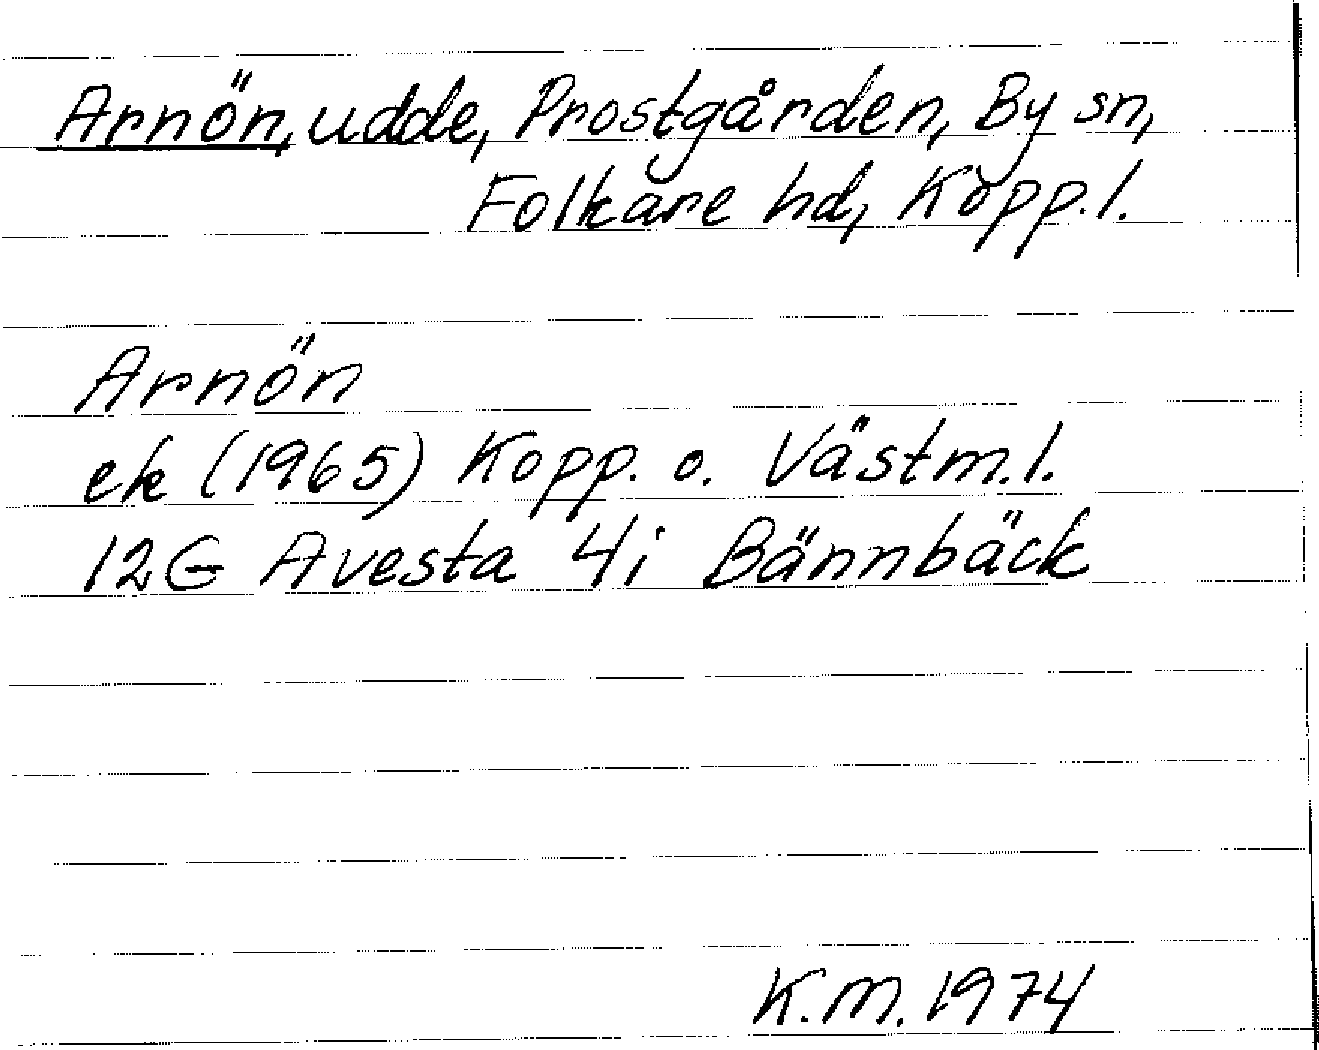 Arnön, udde, Prostgården, By sn,
Folkare hd, Kopp.l.
Arnön
ek (1965) Kopp. o. Västm.l.
12G Avesta 4i Bännbäck
K.M. 1974